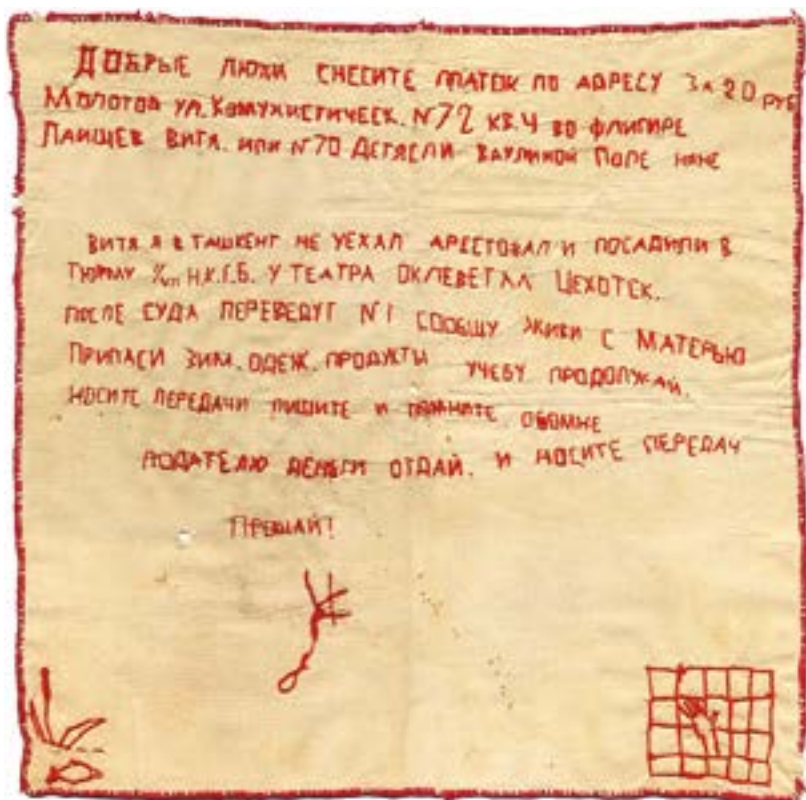 ДОБРЫЕ ЛЮДИ СНЕСИТЕ ПЛАТОК ПО АДРЕСУ ЗА 20 РУБ
МОЛОТОВ УЛ. КОМУНИСТИЧЕСК. N72 КВ. Ч ВО ФЛИГИРЕ
ЛАИЩЕВ ВИТЯ. ИЛИ N70 ДЕТЯСЛИ ВАУЛИНОЙ ПОЛЕ НЯНЕ
ВИТЯ Я В ТАШКЕНТ НЕ УЕХАЛ АРЕСТОВАЛ И ПОСАДИЛИ В
ТЮРМУ Н.К.Г.Б. У ТЕАТРА ОКЛЕВЕТАЛ ЦЕХОТСК.
ПОСЛЕ СУДА ПЕРЕВЕДУТ N1 СООБЩУ ЖИВИ С МАТЕРЬЮ
ПРИПАСИ ЗИМ. ОДЕЖ. ПРОДУКТЫ УЧЕБУ ПРОДОЛЖАЙ.
НОСИТЕ ПЕРЕДАЧИ ПИШИТЕ И ПОМНИТЕ ОБОМНЕ
ПОДАТЕЛЮ ДЕНЬГИ ОТДАЙ. И НОСИТЕ ПЕРЕДАЧ
ПРОЩАЙ!